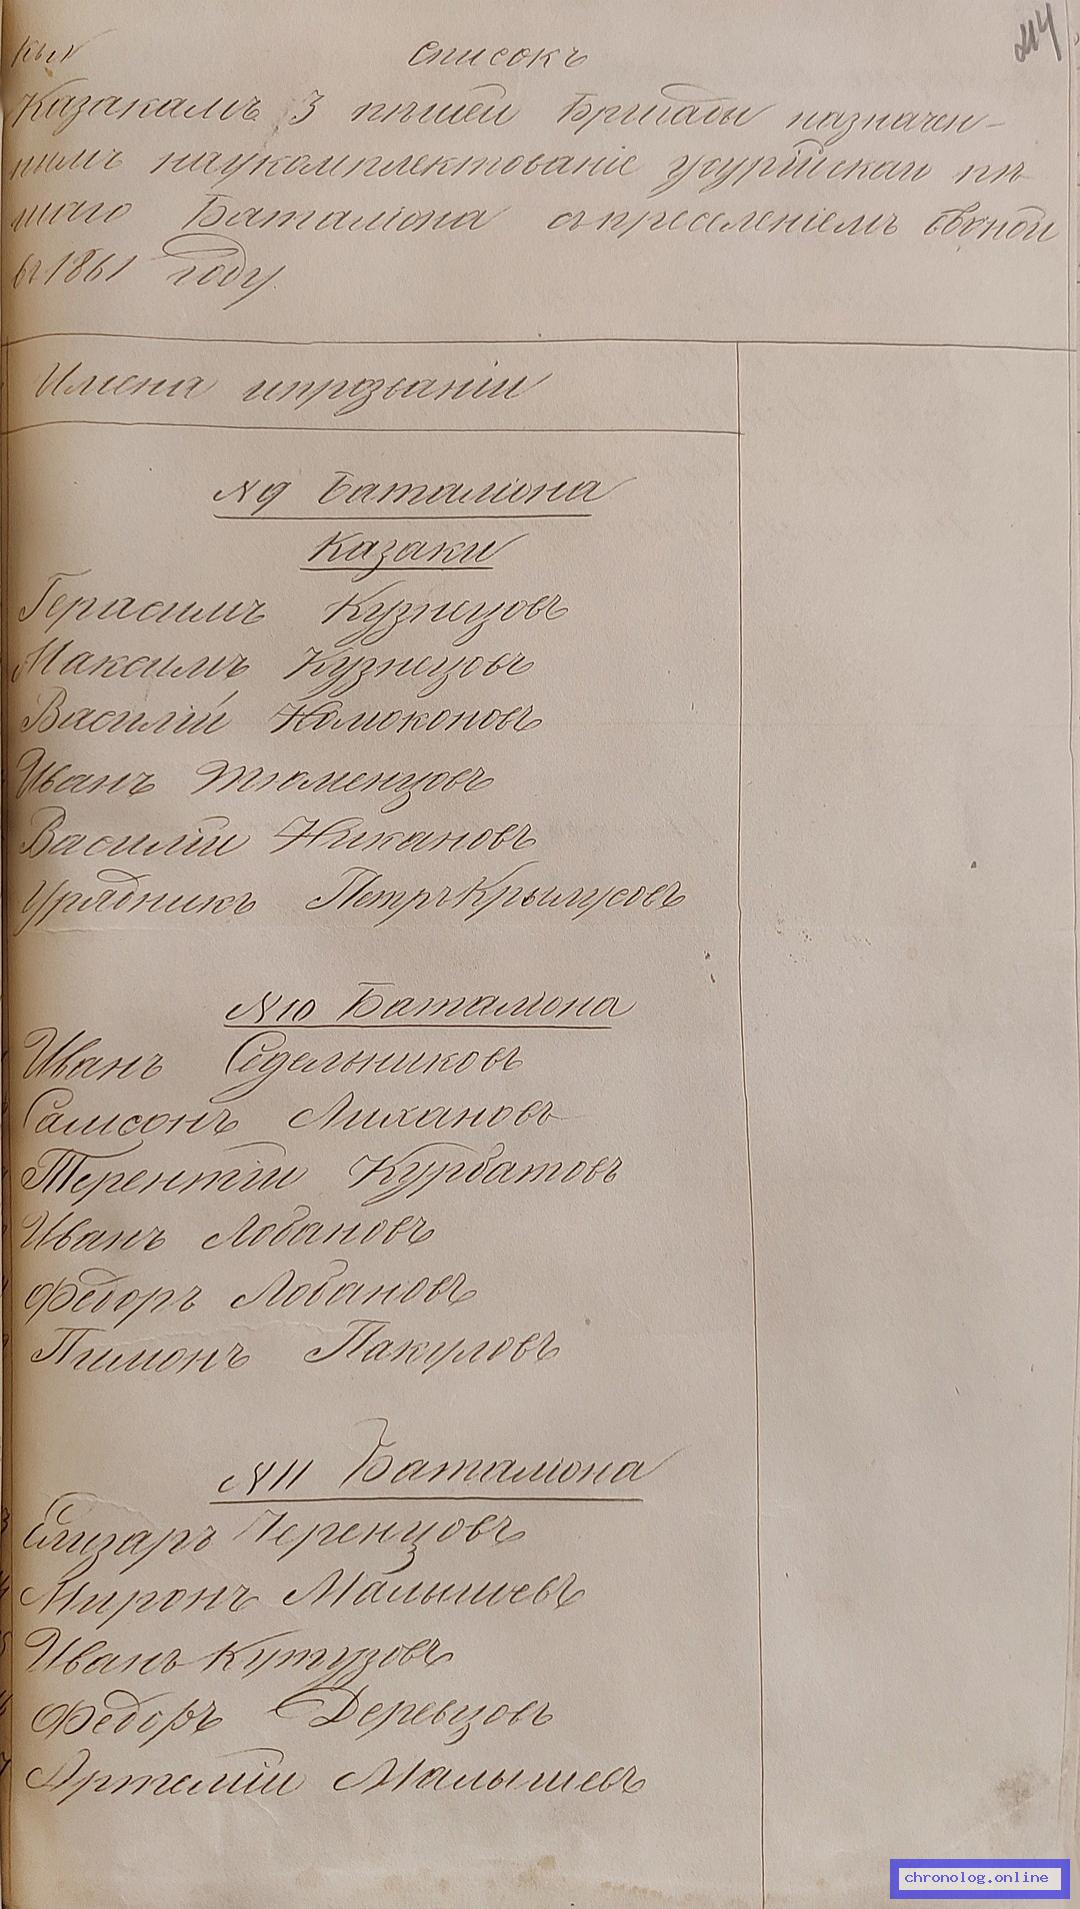 244
Списокъ
Казакамъ 3 пѣшей Бригады назначен-
нымъ наукомплектованіе усурійскаго пѣ
шаго Баталіона съпреселеніемъ
въ 1861 году.
Имена ипрозваніи
№ 9 Баталіона
Казаки
Герасимъ Кузнецовъ
Максимъ Кузнецовъ
Василій Номоконовъ
Иванъ Тюменцовъ
Василіи Никановъ
Урядникъ Петръ Крылусовъ
№ 10 Баталіона
Иванъ Седельниковъ
Самсонъ Лихановъ
Терентіи Курбатовъ
Иванъ Лобановъ
Федоръ Лобановъ
Пимонъ Пакуловъ
№ 11 Баталіона
Елизаръ Черенцовъ
Миронъ Малышевъ
Иванъ Кутузовъ
Федоръ Деревцовъ
Артеміи Малышевъ
chronolog.online